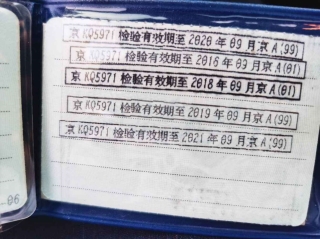 京 KQ5971 检验有效期至 2020 年 09 月京 A(99)
京 KQ5971 检验有效期至 2016 年 09 月京 A(01)
京 KQ5971 检验有效期至 2018 年 09 月京 A(01)
京 KQ5971 检验有效期至 2019 年 09 月京 A(99)
京 KQ5971 检验有效期至 2021 年 09 月京 A(99)
06